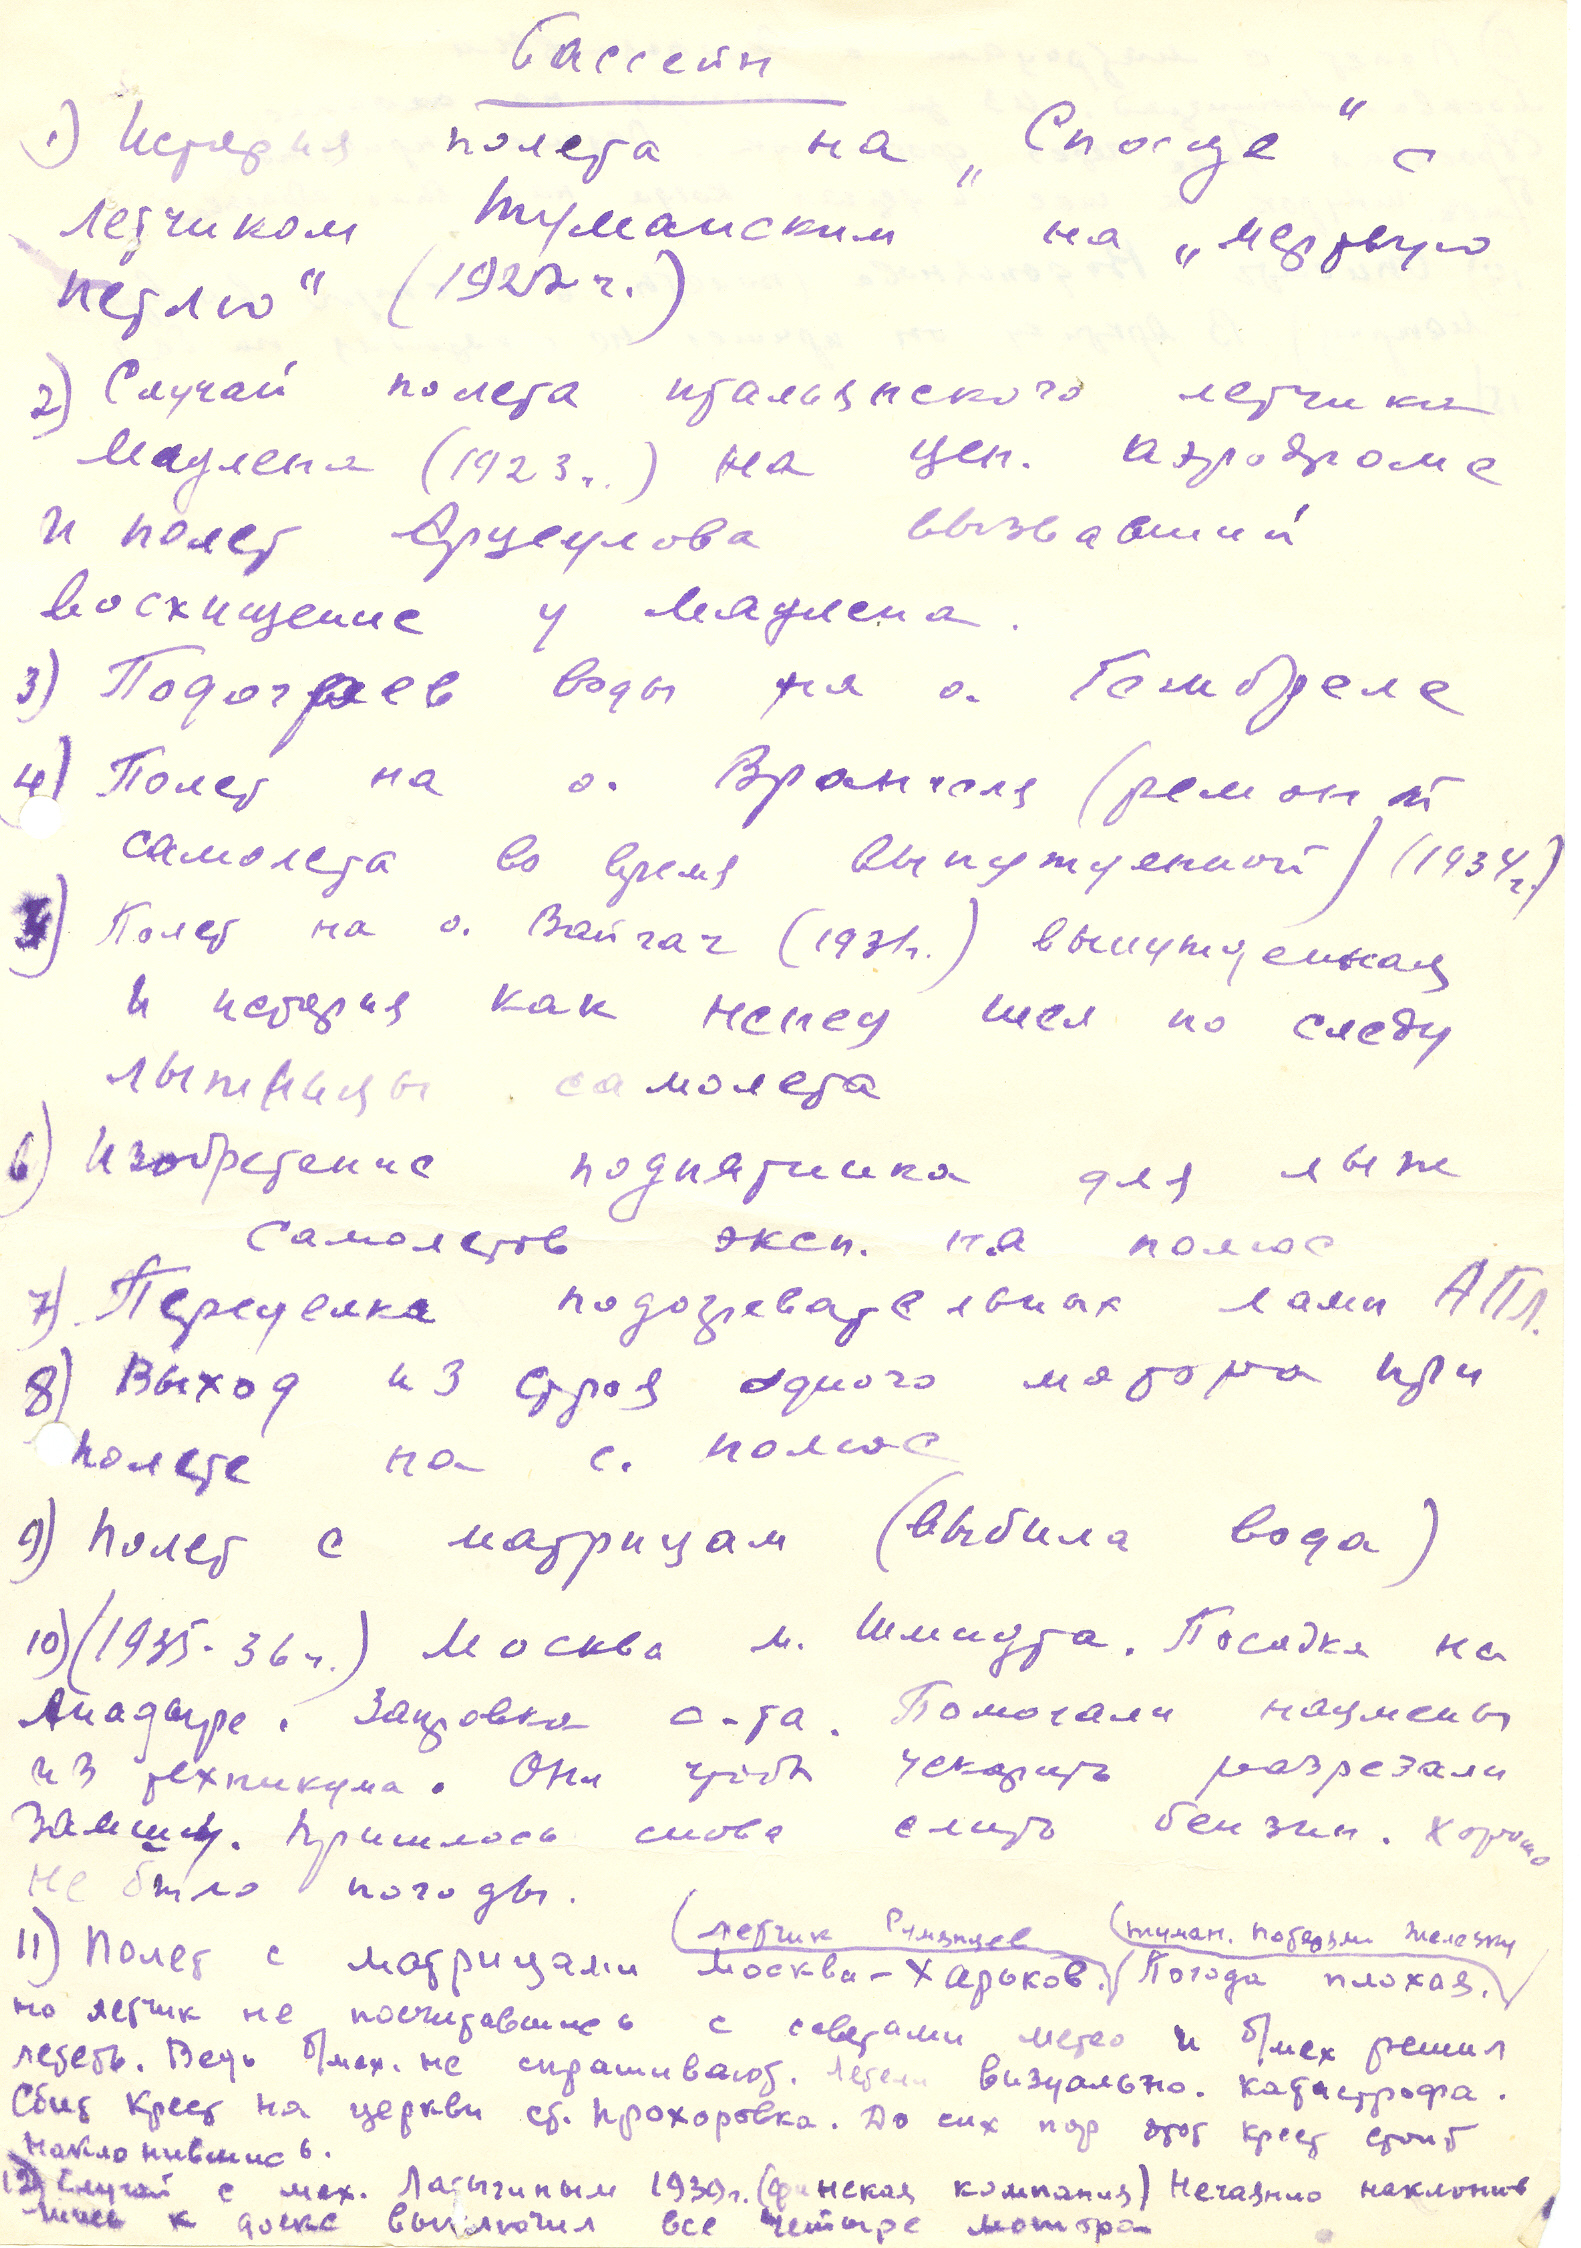 Бассейн
1) История полета на „Спаде" с
летчиком Туманским на „мертвую
петлю" (1922 г.)
2) Случай полета итальянского летчика
Мадлена (1923 г.) на цен. аэродроме
и полет Арцеулова вызвавший
восхищение у Мадлена.
3) Подогрев воды на о.
4) Полет на о. Врангеля (ремонт
самолета во время вынужденной) (1934 г.)
5) Полет на о. Вайгач (193 г.) вынужденная
и история как ненец шел по следу
лыжницы самолета
6) Изобретение подпятника для лыж
самолетов эксп. на полюс
7) Переделка подогревательных ламп АПЛ.
8) Выход из строя одного мотора при
полете на с. полюс
9) Полет с матрицам (выбила вода)
10) (1935-36 г.) Москва м. Шмидта. Посадка на
Анадыре. Запровка с-та. Помогали нацмены
из техникума. Они чтоб ускорить разрезали
замшу. Пришлось снова слить бензин. Хорошо
не было погоды.
(летчик Румянцев (туман. потеряли железку
11) Полет с матрицами Москва-Харьков. Погода плохая.
но летчик не посчитавшись с советами метео и б/мех решил
лететь. Ведь б/мех. не спрашивают. Летели визуально. катастрофа.
Сбит крест на церкви ст. Прохоровка. До сих пор этот крест стоит
наклонившись.
12) Случай с мех. Латыгиным 1939 г. (финская компания) Нечаянно наклонив
шись к доске выключил все четыре мотора